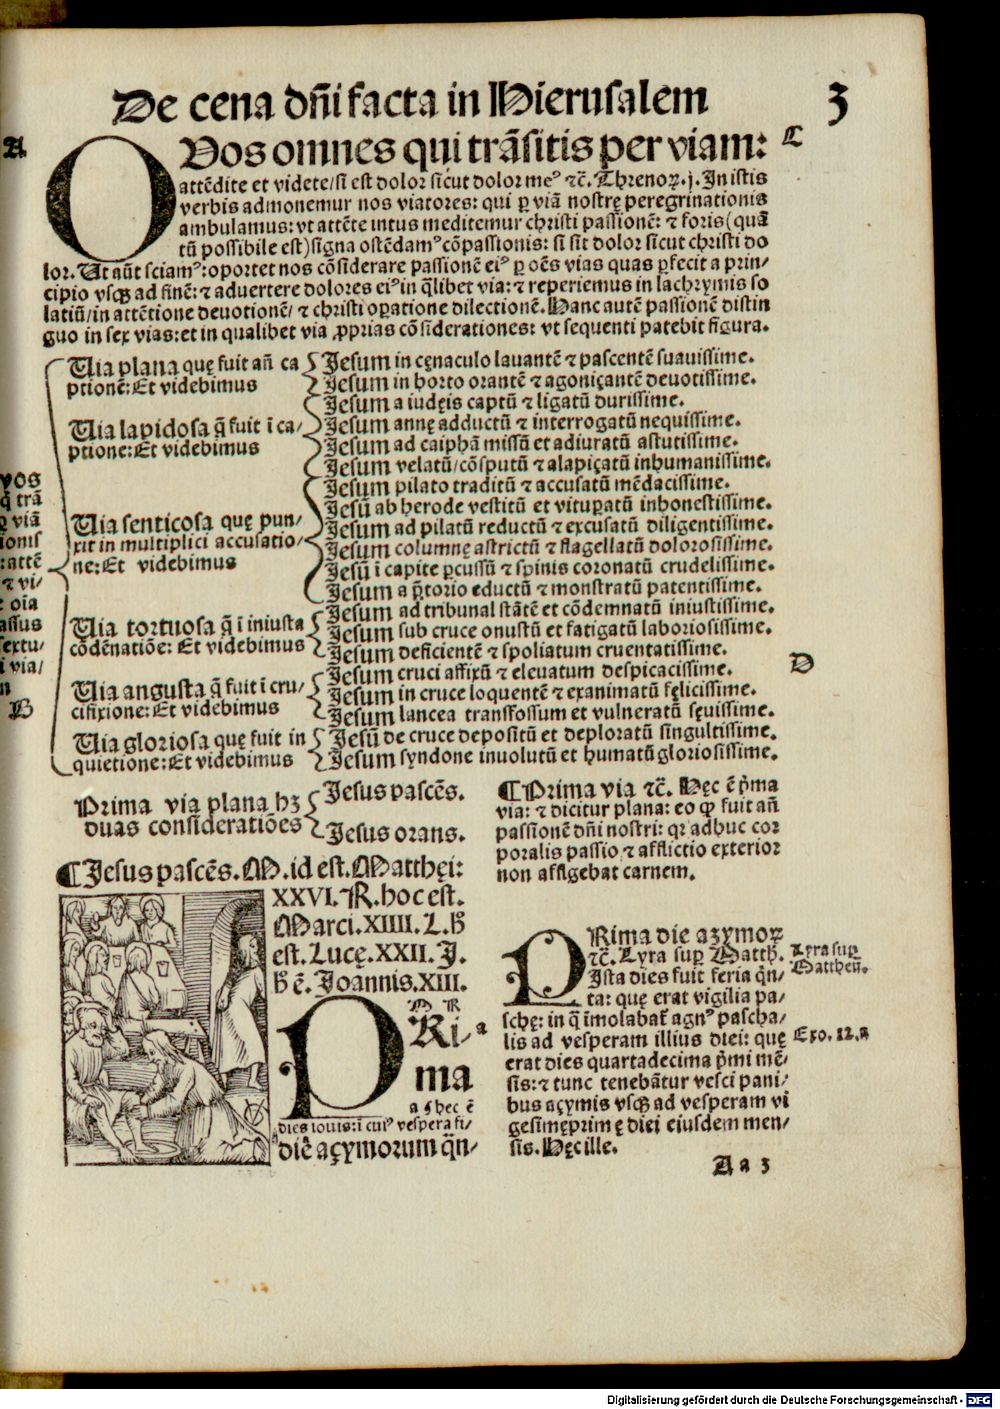 De cena dñi facta in Hierusalem
3
A
O Vos omnes qui trãsitis per viam:
C
attẽdite et videte/si est dolor sicut dolor meꝰ ⁊c̃. Threnoꝝ.j. In istis
verbis admonemur nos viatores: qui ꝑ viã nostrę peregrinationis
ambulamus: vt attẽte intus meditemur christi passionẽ: ⁊ foris (quã
tũ possibile est) signa ostẽdamꝰ cõpassionis: si sit dolor sicut christi do
lor. Ut aũt sciamꝰ: oportet nos cõsiderare passionẽ eiꝰ ꝑ oẽs vias quas ꝑfecit a prin/
cipio vsqꝫ ad finẽ: ⁊ aduertere dolores eiꝰ in q̃libet via: ⁊ reperiemus in lachrymis so
latiũ/ in attẽtione deuotionẽ/ ⁊ christi oꝑatione dilectionẽ. Hanc autẽ passionẽ distin
guo in sex vias: et in qualibet via ꝓprias cõsiderationes: vt sequenti patebit figura.
Uia plana quę fuit añ ca
ptionẽ: Et videbimus
Jesum in cęnaculo lauantẽ ⁊ pascentẽ suauissime.
Jesum in horto orantẽ ⁊ agoniçantẽ deuotissime.
Uia lapidosa q̃ fuit ĩ ca/
ptione: Et videbimus
Jesum a iudęis captũ ⁊ ligatũ durissime.
Jesum annę adductũ ⁊ interrogatũ nequissime.
Jesum ad caiphã missũ et adiuratũ astutissime.
Jesum velatũ/ cõsputũ ⁊ alapiçatũ inhumanissime.
Uia senticosa quę pun/
xit in multiplici accusatio/
ne: Et videbimus
Jesum pilato traditũ ⁊ accusatũ mẽdacissime.
Jesũ ab herode vestitũ et vituꝑatũ inhonestissime.
Jesum ad pilatũ reductũ ⁊ excusatũ diligentissime.
Jesum columnę astrictũ ⁊ flagellatũ dolorosissime.
Jesũ ĩ capite ꝑcussũ ⁊ spinis coronatũ crudelissime.
Jesum a p̃torio eductũ ⁊ monstratũ patentissime.
Uia tortuosa q̃ ĩ iniusta
cõdẽnatiõe: Et videbimus
Jesum ad tribunal stãtẽ et cõdemnatũ iniustissime.
Jesum sub cruce onustũ et fatigatũ laboriosissime.
Jesum deficientẽ ⁊ spoliatum cruentatissime.
D
Uia angusta q̃ fuit ĩ cru/
cifixione: Et videbimus
Jesum cruci affixũ ⁊ eleuatum despicacissime.
Jesum in cruce loquentẽ ⁊ exanimatũ fęlicissime.
Jesum lancea transfossum et vulneratũ sęuissime.
Uia gloriosa quę fuit in
quietione: Et videbimus
Jesũ de cruce depositũ et deploratũ singultissime.
Jesum syndone inuolutũ et humatũ gloriosissime.
vos
q̃ trã
ꝑ viã
ionis
: attẽ
⁊ vi/
oĩa
assus
sextu/
i via/
n
B
Prima via plana hꝫ
duas consideratiões
Jesus pascẽs.
Jesus orans.
¶Jesus pascẽs. M. id est. Matthęi:
XXVI. R. hoc est.
Marci. XIIII. L. h̃
est. Lucę. XXII. J.
h̃ ẽ. Joannis. XIII.
M R
PRi/ a
ma
a hec ẽ
dies iouis: ĩ cuiꝰ vespera fi/
diẽ açymorum q̃n/
¶Prima via ⁊c̃. Hęc ẽ p̃ma
via: ⁊ dicitur plana: eo ꝙ fuit añ
passionẽ dñi nostri: qꝛ adhuc cor
poralis passio ⁊ afflictio exterior
non affligebat carnem.
PRima die azymoꝝ
⁊c̃. Lyra suꝑ Matth̃.
Ista dies fuit feria q̃n/
ta: quę erat vigilia pa/
schę: in q̃ imolabat̃ agnꝰ pascha/
lis ad vesperam illius diei: quę
erat dies quartadecima p̃mi mẽ/
sis: ⁊ tunc tenebãtur vesci pani/
bus açymis vsqꝫ ad vesperam vi
gesimęprimę diei eiusdem men/
sis. Hęc ille.
Lyra suꝑ
Mattheũ.
Exo. 12. a
Aa 3
Digitalisierung gefördert durch die Deutsche Forschungsgemeinschaft - DFG